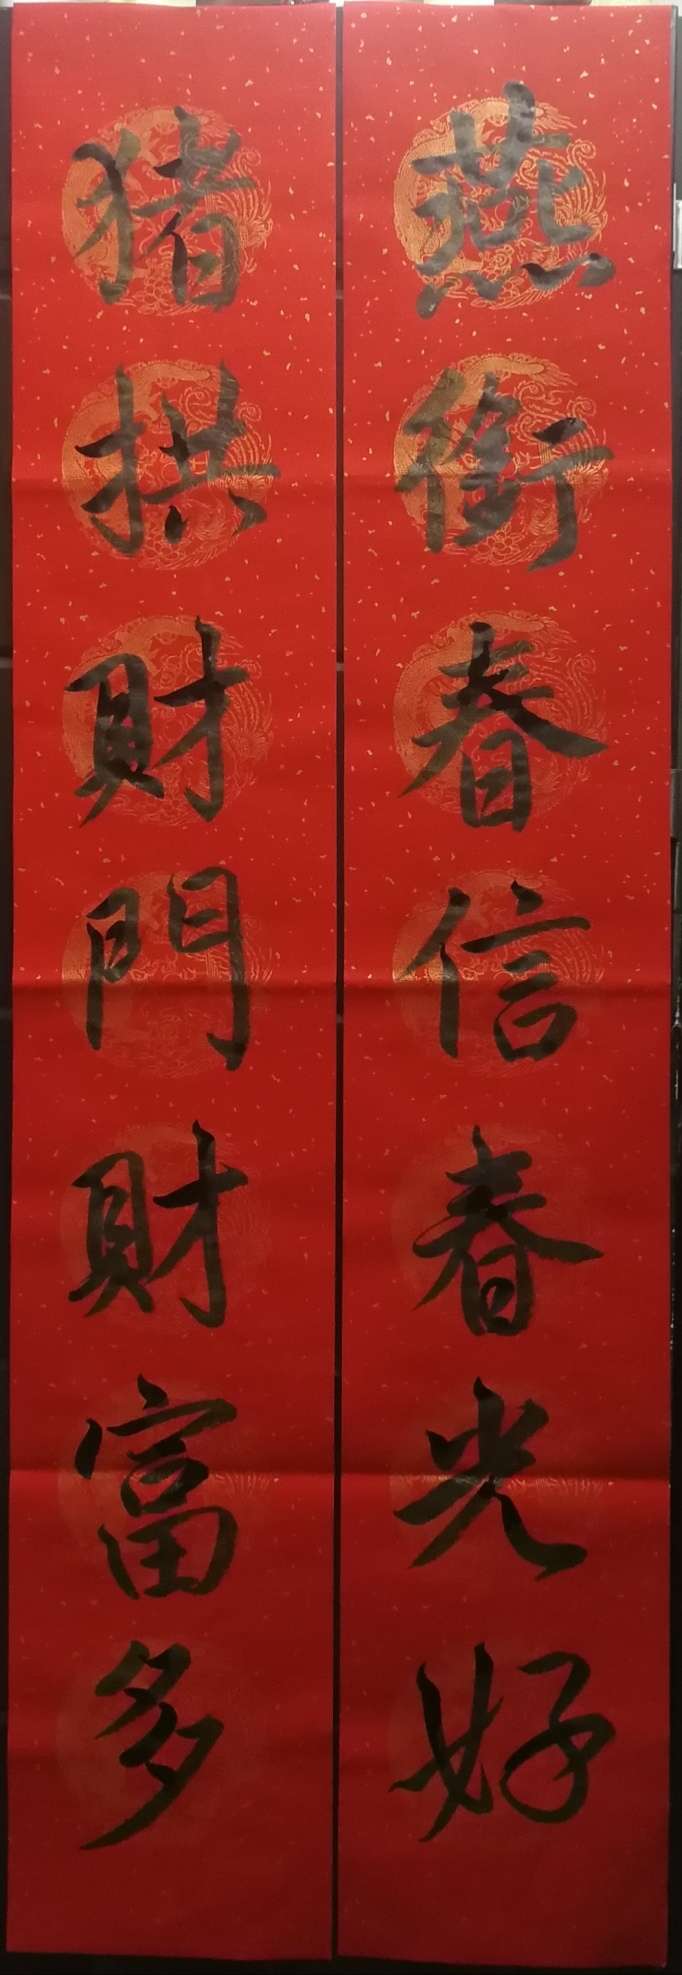 燕銜春信春光好
猪拱財門財富多